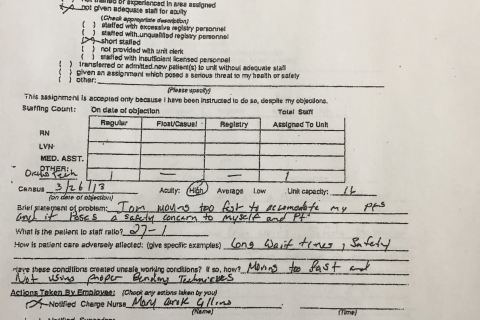 ( ) not trained or experienced in area assigned
not given adequate staff for acuity
(Check appropriate description)
( ) staffed with excessive registry personnel
( ) staffed with unqualified registry personnel
short staffed
( ) not provided with unit clerk
( ) staffed with insufficient licensed personnel
( ) transferred or admitted new patient(s) to unit without adequate staff
( ) given an assignment which posed a serious threat to my health or safety
( ) other:
(Please specify)
This assignment is accepted only because I have been instructed to do so, despite my objections.
Staffing Count: On date of objection Total Staff
Regular Float/Casual Registry Assigned To Unit
RN
LVN
MED. ASST.
OTHER:
Tech 1 — — 1
Census 3/26/18 Acuity: High Average Low Unit capacity: 16
(on date of objection)
Brief statement of problem: I am moving too fast to accomodate my pts
and it poses a safety concern to myself and Pt
What is the patient to staff ratio? 27-1
How is patient care adversely affected: (give specific examples) Long Wait times, Safety
Have these conditions created unsafe working conditions? If so, how? Moving too fast and
Not using proper Bending Techniques
Actions Taken By Employee: (Check any actions taken by you)
Notified Charge Nurse Mary
(Name) (Time)